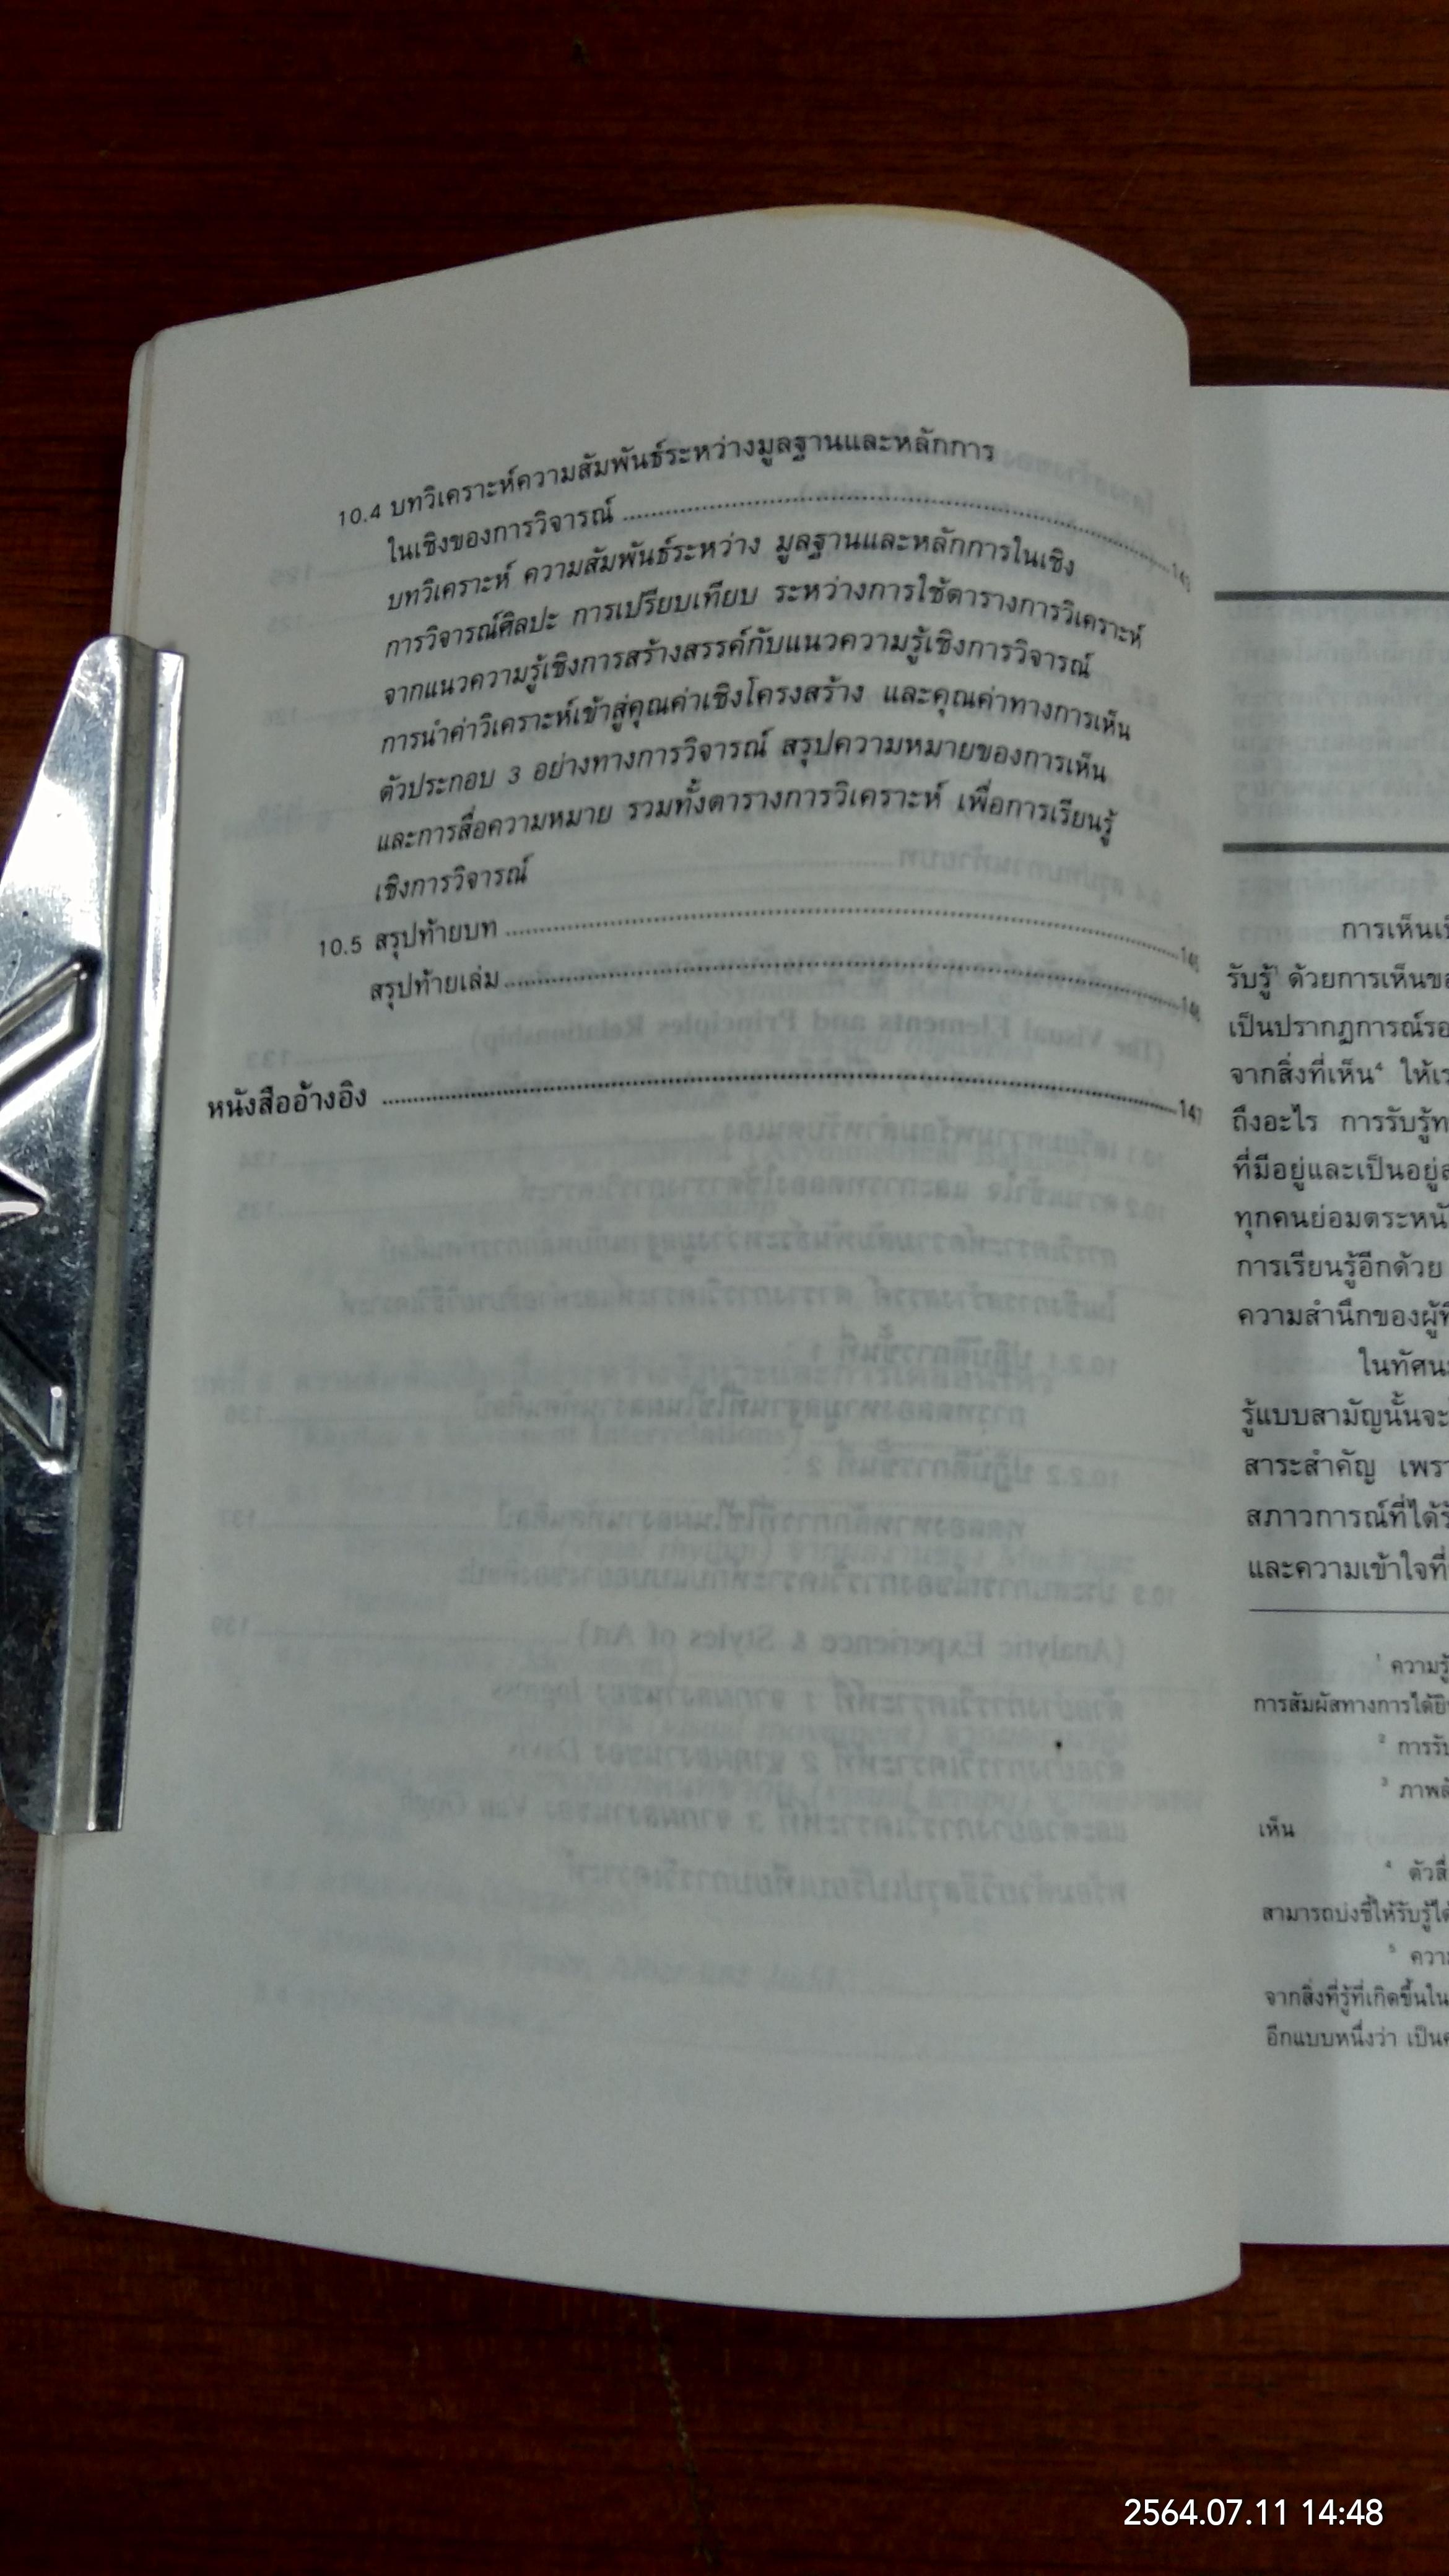 10.4 บทวิเคราะห์ความสัมพันธ์ระหว่างมูลฐานและหลักการ
ในเชิงของการวิจารณ์ ........................................
บทวิเคราะห์ ความสัมพันธ์ระหว่าง มูลฐานและหลักการในเชิง
การวิจารณ์ศิลปะ การเปรียบเทียบ ระหว่างการใช้ตารางการวิเคราะห์
จากแนวความรู้เชิงการสร้างสรรค์กับแนวความรู้เชิงการวิจารณ์
การนำค่าวิเคราะห์เข้าสู่คุณค่าเชิงโครงสร้าง และคุณค่าทางการเห็น
ตัวประกอบ 3 อย่างทางการวิจารณ์ สรุปความหมายของการเห็น
และการสื่อความหมาย รวมทั้งตารางการวิเคราะห์ เพื่อการเรียนรู้
เชิงการวิจารณ์
10.5 สรุปท้ายบท ........................................
สรุปท้ายเล่ม ........................................
หนังสืออ้างอิง ........................................ 147
การเห็นเ
รับรู้¹ ด้วยการเห็นขอ
เป็นปรากฏการณ์รอ
จากสิ่งที่เห็น⁴ ให้เร
ถึงอะไร การรับรู้ท
ที่มีอยู่และเป็นอยู่
ทุกคนย่อมตระหนั
การเรียนรู้อีกด้วย
ความสำนึกของผู้
ในทัศน
รู้แบบสามัญนั้นจะ
สาระสำคัญ เพร
สภาวการณ์ที่ได้
และความเข้าใจที่
¹ ความรู้
การสัมผัสทางการได้ยิ
² การรั
³ ภาพ
เห็น
⁴ ตัวสื่
สามารถบ่งชี้ให้รับรู้ได้
⁵ ความ
จากสิ่งที่รู้ที่เกิดขึ้นใน
อีกแบบหนึ่งว่า เป็น
2564.07.11 14:48